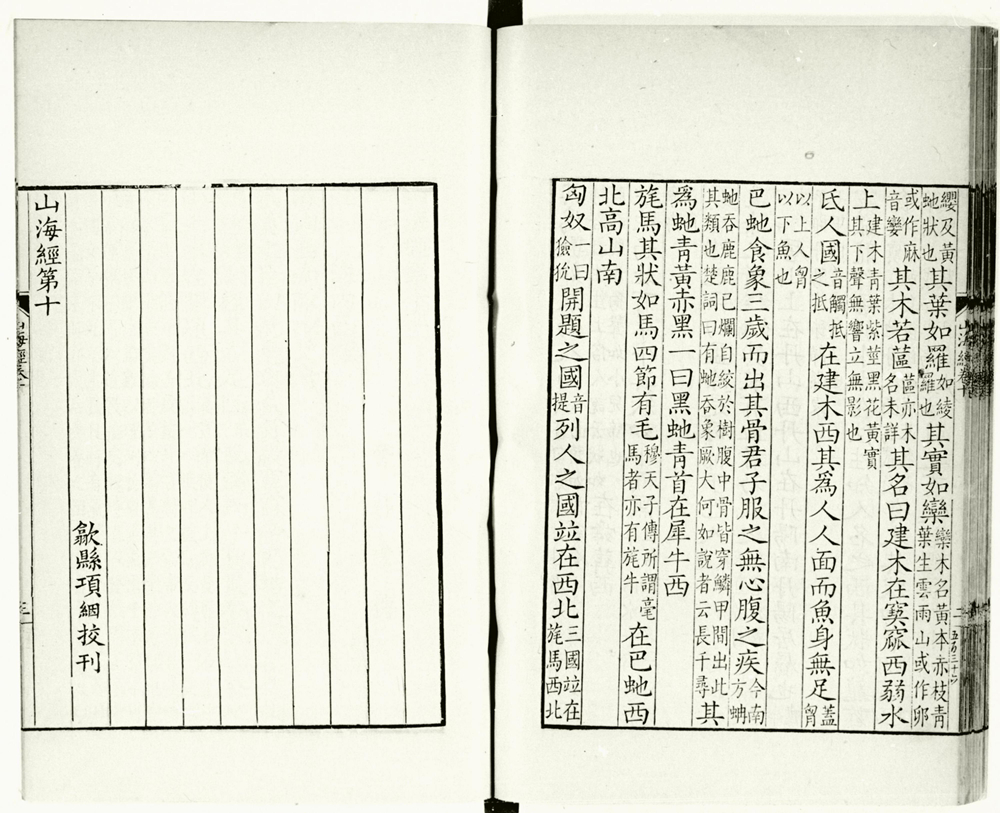 纓及黃虵狀也其葉如羅如綾羅也其實如欒欒木名黃本赤枝青葉生雲雨山或作卵
或作麻音孌其木若蓲蓲亦木名未詳其名曰建木在窫窳西弱水
上建木青葉紫莖黑花黃實其下聲無響立無影也
氐人國音觸抵之抵在建木西其為人人面而魚身無足蓋胷
以上人胷以下魚也
巴虵食象三歲而出其骨君子服之無心腹之疾今南方蚺
虵吞鹿鹿已爛自絞於樹腹中骨皆穿鱗甲間出此其類也楚詞曰有虵吞象厥大何如說者云長千尋其
為虵青黃赤黑一曰黑虵青首在犀牛西
旄馬其狀如馬四節有毛穆天子傳所謂毫馬者亦有旄牛在巴虵西
北高山南
匈奴一曰獫狁開題之國音提列人之國竝在西北三國竝在旄馬西北
歙縣項絪挍刊
山海經第十